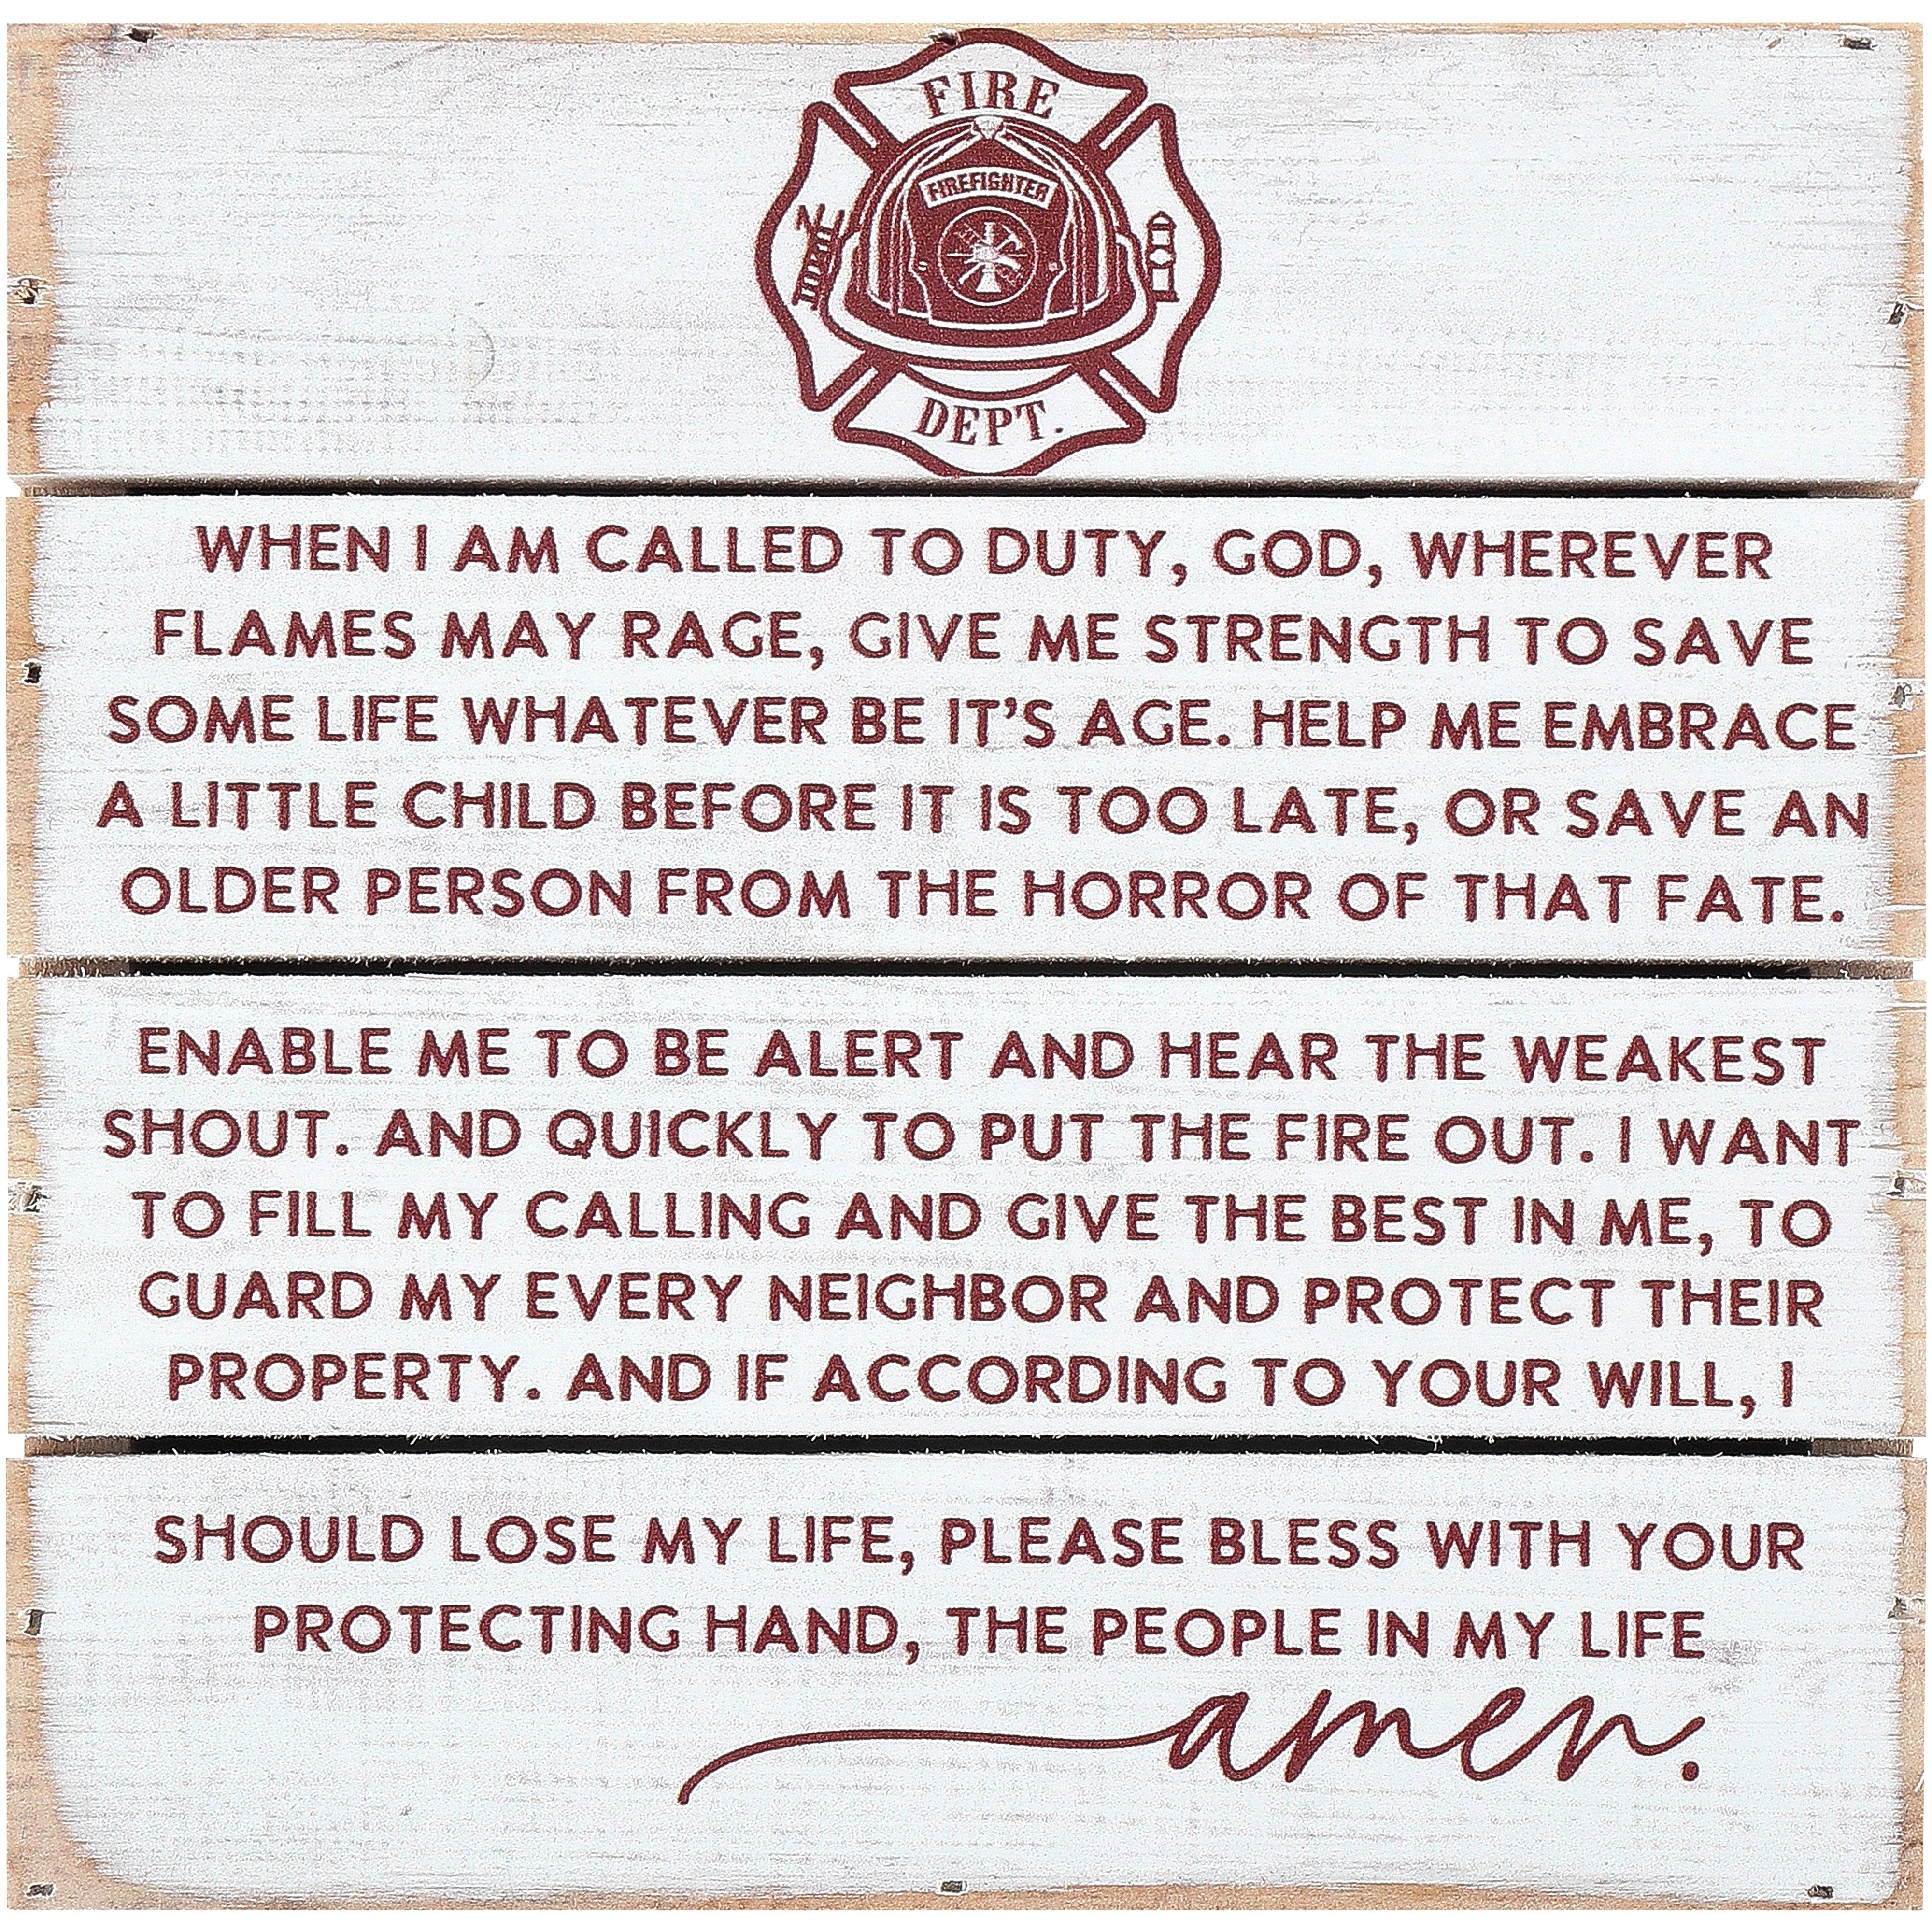 FIRE
FIREFIGHTER
DEPT.
WHEN I AM CALLED TO DUTY, GOD, WHEREVER
FLAMES MAY RAGE, GIVE ME STRENGTH TO SAVE
SOME LIFE WHATEVER BE IT'S AGE. HELP ME EMBRACE
A LITTLE CHILD BEFORE IT IS TOO LATE, OR SAVE AN
OLDER PERSON FROM THE HORROR OF THAT FATE.
ENABLE ME TO BE ALERT AND HEAR THE WEAKEST
SHOUT. AND QUICKLY TO PUT THE FIRE OUT. I WANT
TO FILL MY CALLING AND GIVE THE BEST IN ME, TO
GUARD MY EVERY NEIGHBOR AND PROTECT THEIR
PROPERTY. AND IF ACCORDING TO YOUR WILL, I
SHOULD LOSE MY LIFE, PLEASE BLESS WITH YOUR
PROTECTING HAND, THE PEOPLE IN MY LIFE
amen.